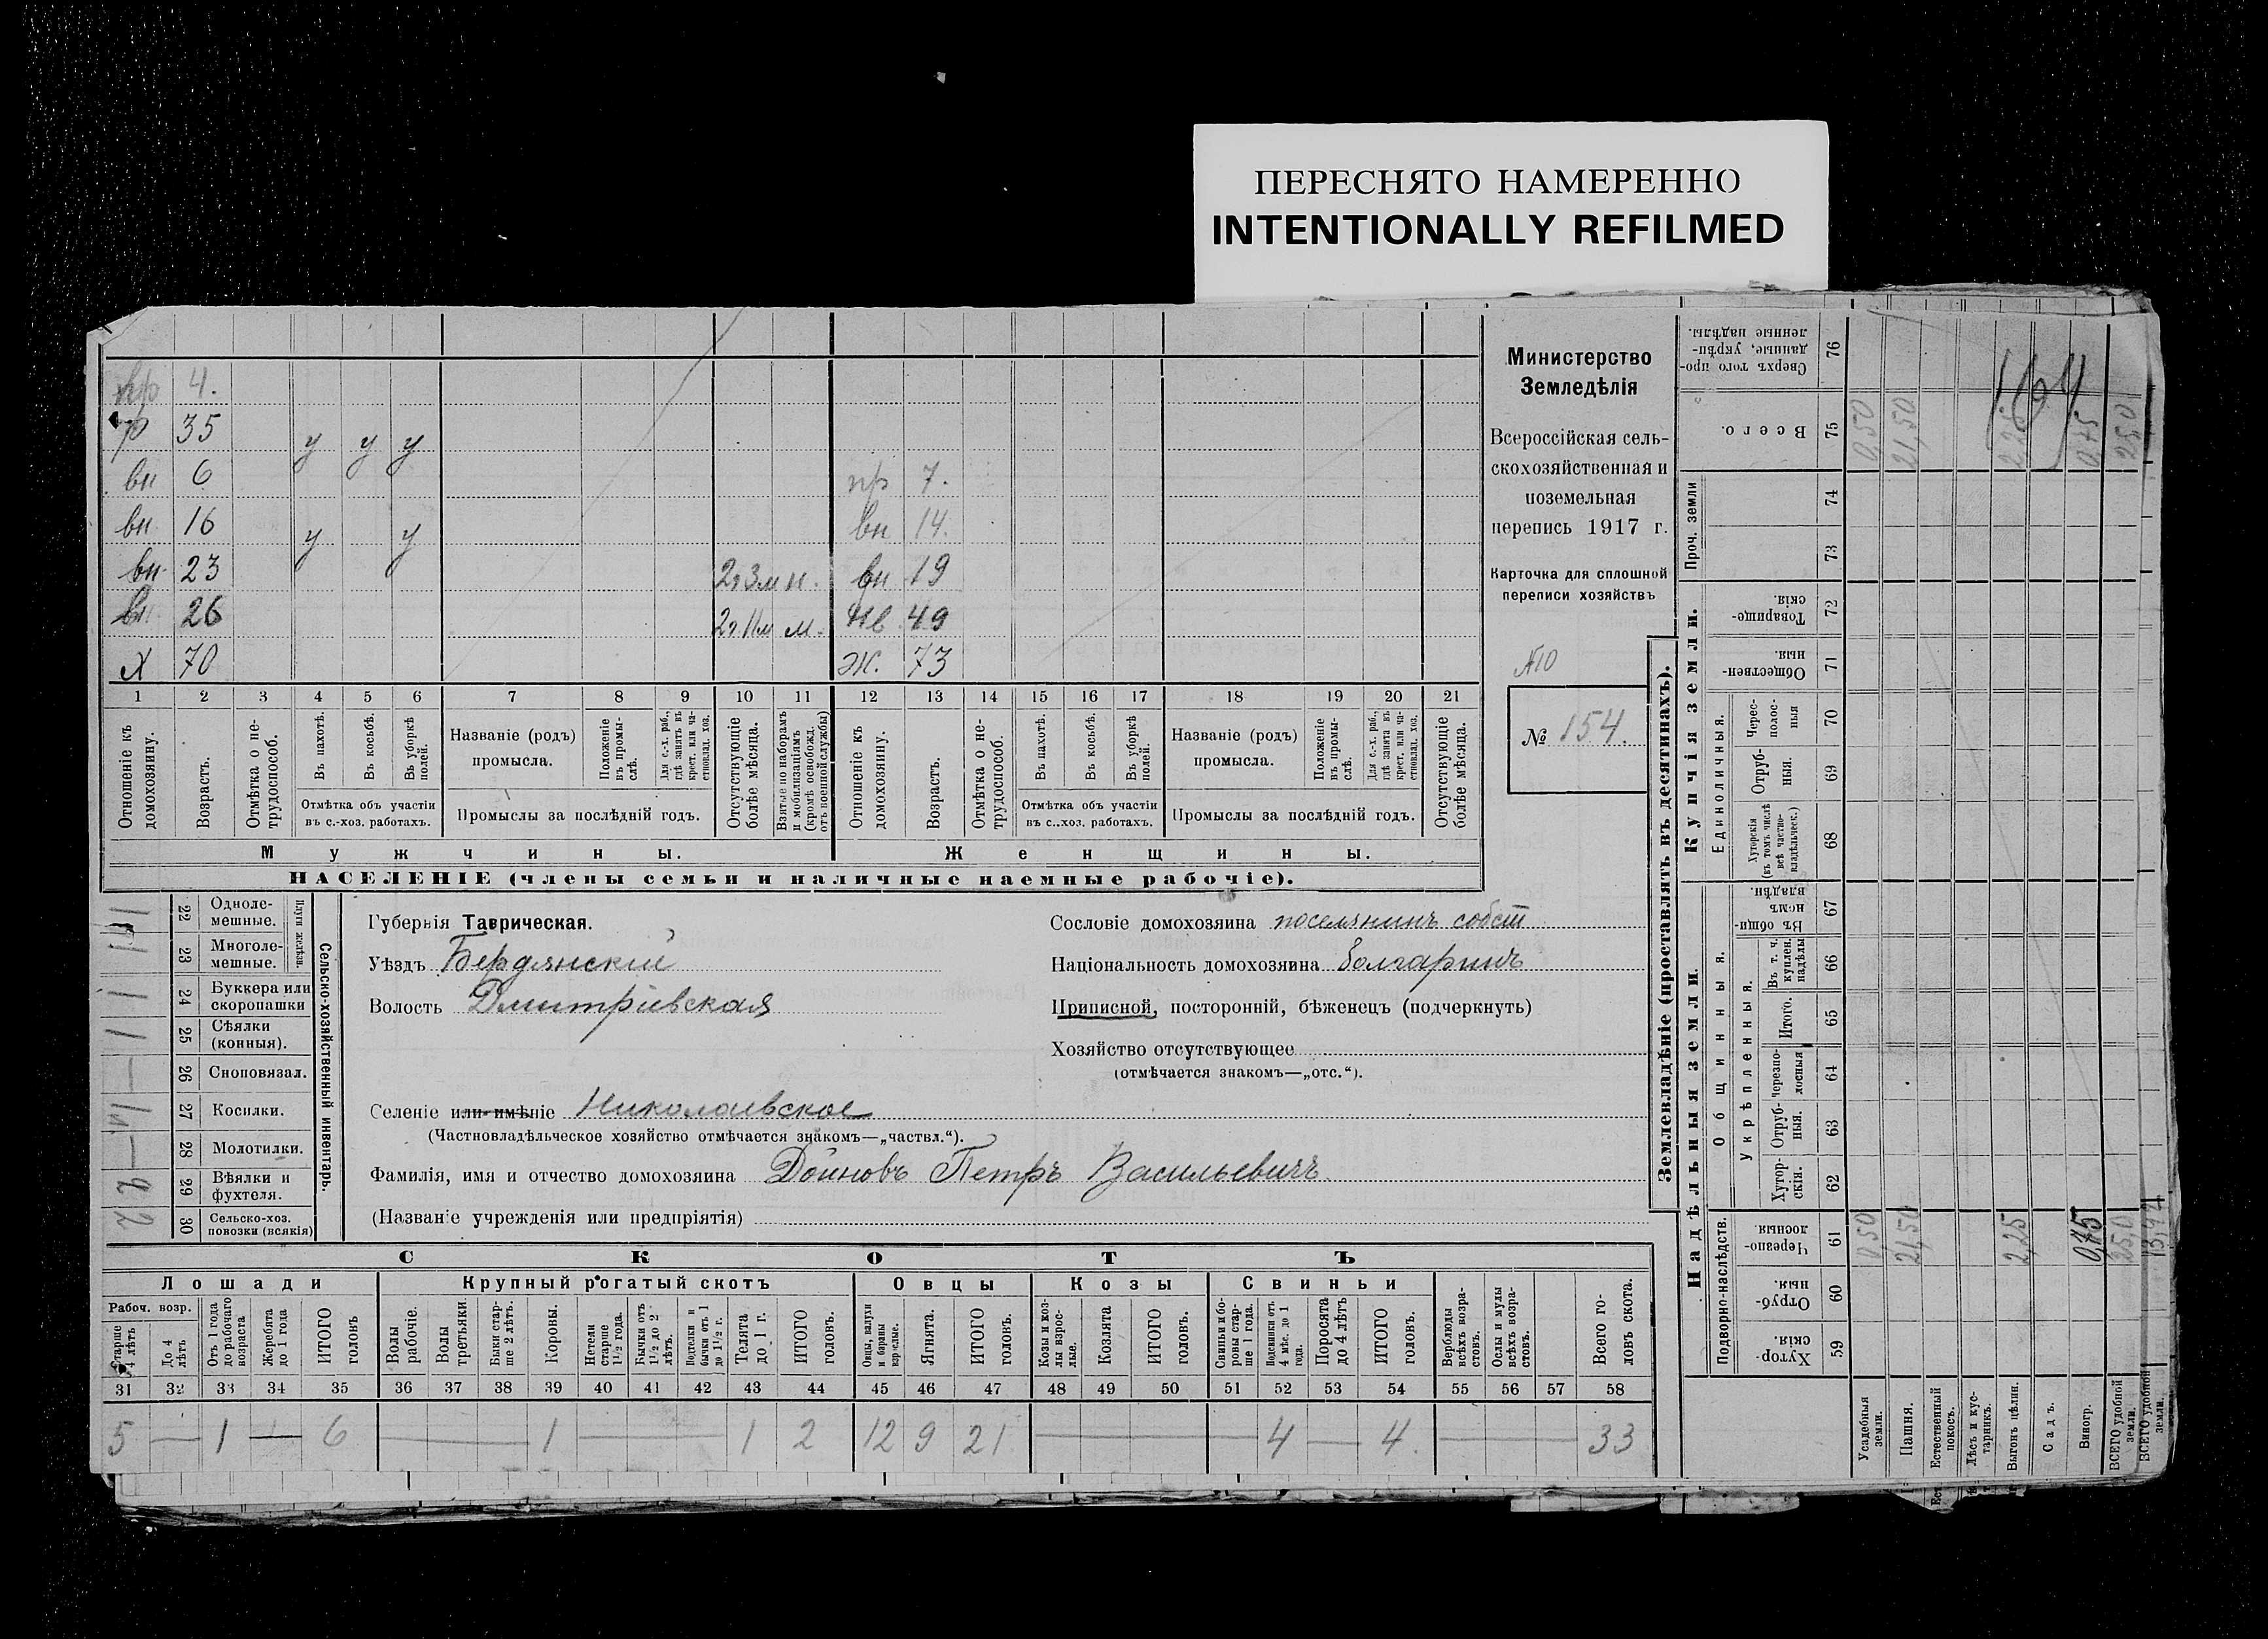 ПЕРЕСНЯТО НАМЕРЕННО
INTENTIONALLY REFILMED
пр 4.
р 35 у у у
вн 6 пр 7.
вн 16 у у вн 14.
вн 23 2г 3м н. вн 19
вн 26 2г 11м м. нв 49
х 70 ж. 73
1 2 3 4 5 6 7 8 9 10 11 12 13 14 15 16 17 18 19 20 21
Отношеніе къ домохозяину.
Возрастъ.
Отмѣтка о не-трудоспособ.
Въ пахотѣ.
Въ косьбѣ.
Въ уборкѣ полей.
Отмѣтка объ участіи въ с.-хоз. работахъ.
Названіе (родъ) промысла.
Положеніе въ промы-слѣ.
Для с.-х. раб., гдѣ занятъ въ крест. или ча-стновлад. хоз.
Промыслы за послѣдній годъ.
Отсутствующіе болѣе мѣсяца.
Взятые по наборамъ и мобилизаціямъ (кромѣ освобожд. отъ военной службы)
Отношеніе къ домохозяину.
Возрастъ.
Отмѣтка о не-трудоспособ.
Въ пахотѣ.
Въ косьбѣ.
Въ уборкѣ полей.
Отмѣтка объ участіи въ с..хоз. работахъ.
Названіе (родъ) промысла.
Положеніе въ промы-слѣ.
Для с.-х. раб., гдѣ занята въ крест. или ча-стновлад. хоз.
Промыслы за послѣдній годъ.
Отсутствующіе болѣе мѣсяца.
Мужчины.
Женщины.
НАСЕЛЕНІЕ (члены семьи и наличные наемные рабочіе).
Министерство
Земледѣлія
Всероссійская сель-
скохозяйственная и
поземельная
перепись 1917 г.
Карточка для сплошной
переписи хозяйствъ
№10
№ 154.
22 Одноле-мешные.
23 Многоле-мешные.
Плуги желѣзн.
24 Буккера или скоропашки 1
25 Сѣялки (конныя). 1
26 Сноповязал. —
27 Косилки. 1
28 Молотилки. —
29 Вѣялки и фухтеля.
30 Сельско-хоз. повозки (всякія) 2
Сельско-хозяйственный инвентарь.
Губернія Таврическая.
Уѣздъ Бердянскій
Волость Дмитріевская
Селеніе или имѣніе Николаевское
(Частновладѣльческое хозяйство отмѣчается знакомъ—„частвл.“).
Фамилія, имя и отчество домохозяина Доиновъ Петръ Васильевичъ.
(Названіе учрежденія или предпріятія)
Сословіе домохозяина поселянинъ собст
Національность домохозяина болгаринъ
Приписной, посторонній, бѣженецъ (подчеркнуть)
Хозяйство отсутствующее
(отмѣчается знакомъ—„отс.“).
СКОТЪ
Лошади
Крупный рогатый скотъ
Овцы
Козы
Свиньи
Рабоч. возр.
Старше 4 лѣтъ
До 4 лѣтъ
Отъ 1 года до рабочаго возраста
Жеребята до 1 года
ИТОГО головъ
Волы рабочіе.
Волы третьяки
Быки стар-ше 2 лѣтъ.
Коровы.
Нетели старше 1½ года.
Бычки отъ 1½ до 2 лѣтъ.
Подтелки и бычки отъ 1 до 1½ г.
Телята до 1 г.
ИТОГО головъ.
Овцы, валухи и бараны взрослые.
Ягнята.
ИТОГО головъ.
Козы и коз-лы взрос-лые.
Козлята
ИТОГО головъ.
Свиньи и бо-ровы стар-ше 1 года.
Подсвинки отъ 4 мѣс. до 1 года.
Поросята до 4 лѣтъ
ИТОГО головъ.
Верблюды всѣхъ возра-стовъ.
Ослы и мулы всѣхъ возра-стовъ.
Всего го-ловъ скота.
31 32 33 34 35 36 37 38 39 40 41 42 43 44 45 46 47 48 49 50 51 52 53 54 55 56 57 58
5 — 1 — 6 — 1 — 1 2 12 9 21 — 4 — 4. — 33
Землевладѣніе (проставлять въ десятинахъ).
Надѣльныя земли.
Купчія земли.
Подворно-наслѣдств.
Общинныя.
Укрѣпленныя.
Единоличныя.
Проч. земли
Хутор-скія. 59
Отруб-ныя. 60
Черезпо-лосныя 61
Хутор-скія. 62
Отруб-ныя. 63
черезпо-лосныя 64
Итого. 65
Въ т. ч. куплен. надѣлы 66
Въ общи-номъ владѣн. 67
Хуторскія (въ томъ числѣ всѣ частно-владѣльческ.) 68
Отруб-ныя. 69
Черес-полос-ныя 70
Обществен-ныя. 71
Товарище-скія. 72
73
74
Всего. 75
Сверхъ того про-данные, укрѣп-ленные надѣлы. 76
Усадебныя земли. 0,50 0,50
Пашня. 21,50 21,50
Естественный покосъ.
Лѣсъ и кус-тарникъ.
Выгонъ цѣлин. 2,25 2,25
Садъ.
Виногр. 0,75 0,75
ВСЕГО удобной земли. 25,0 25,0
ВСЕГО удобной земли. 13,42
164